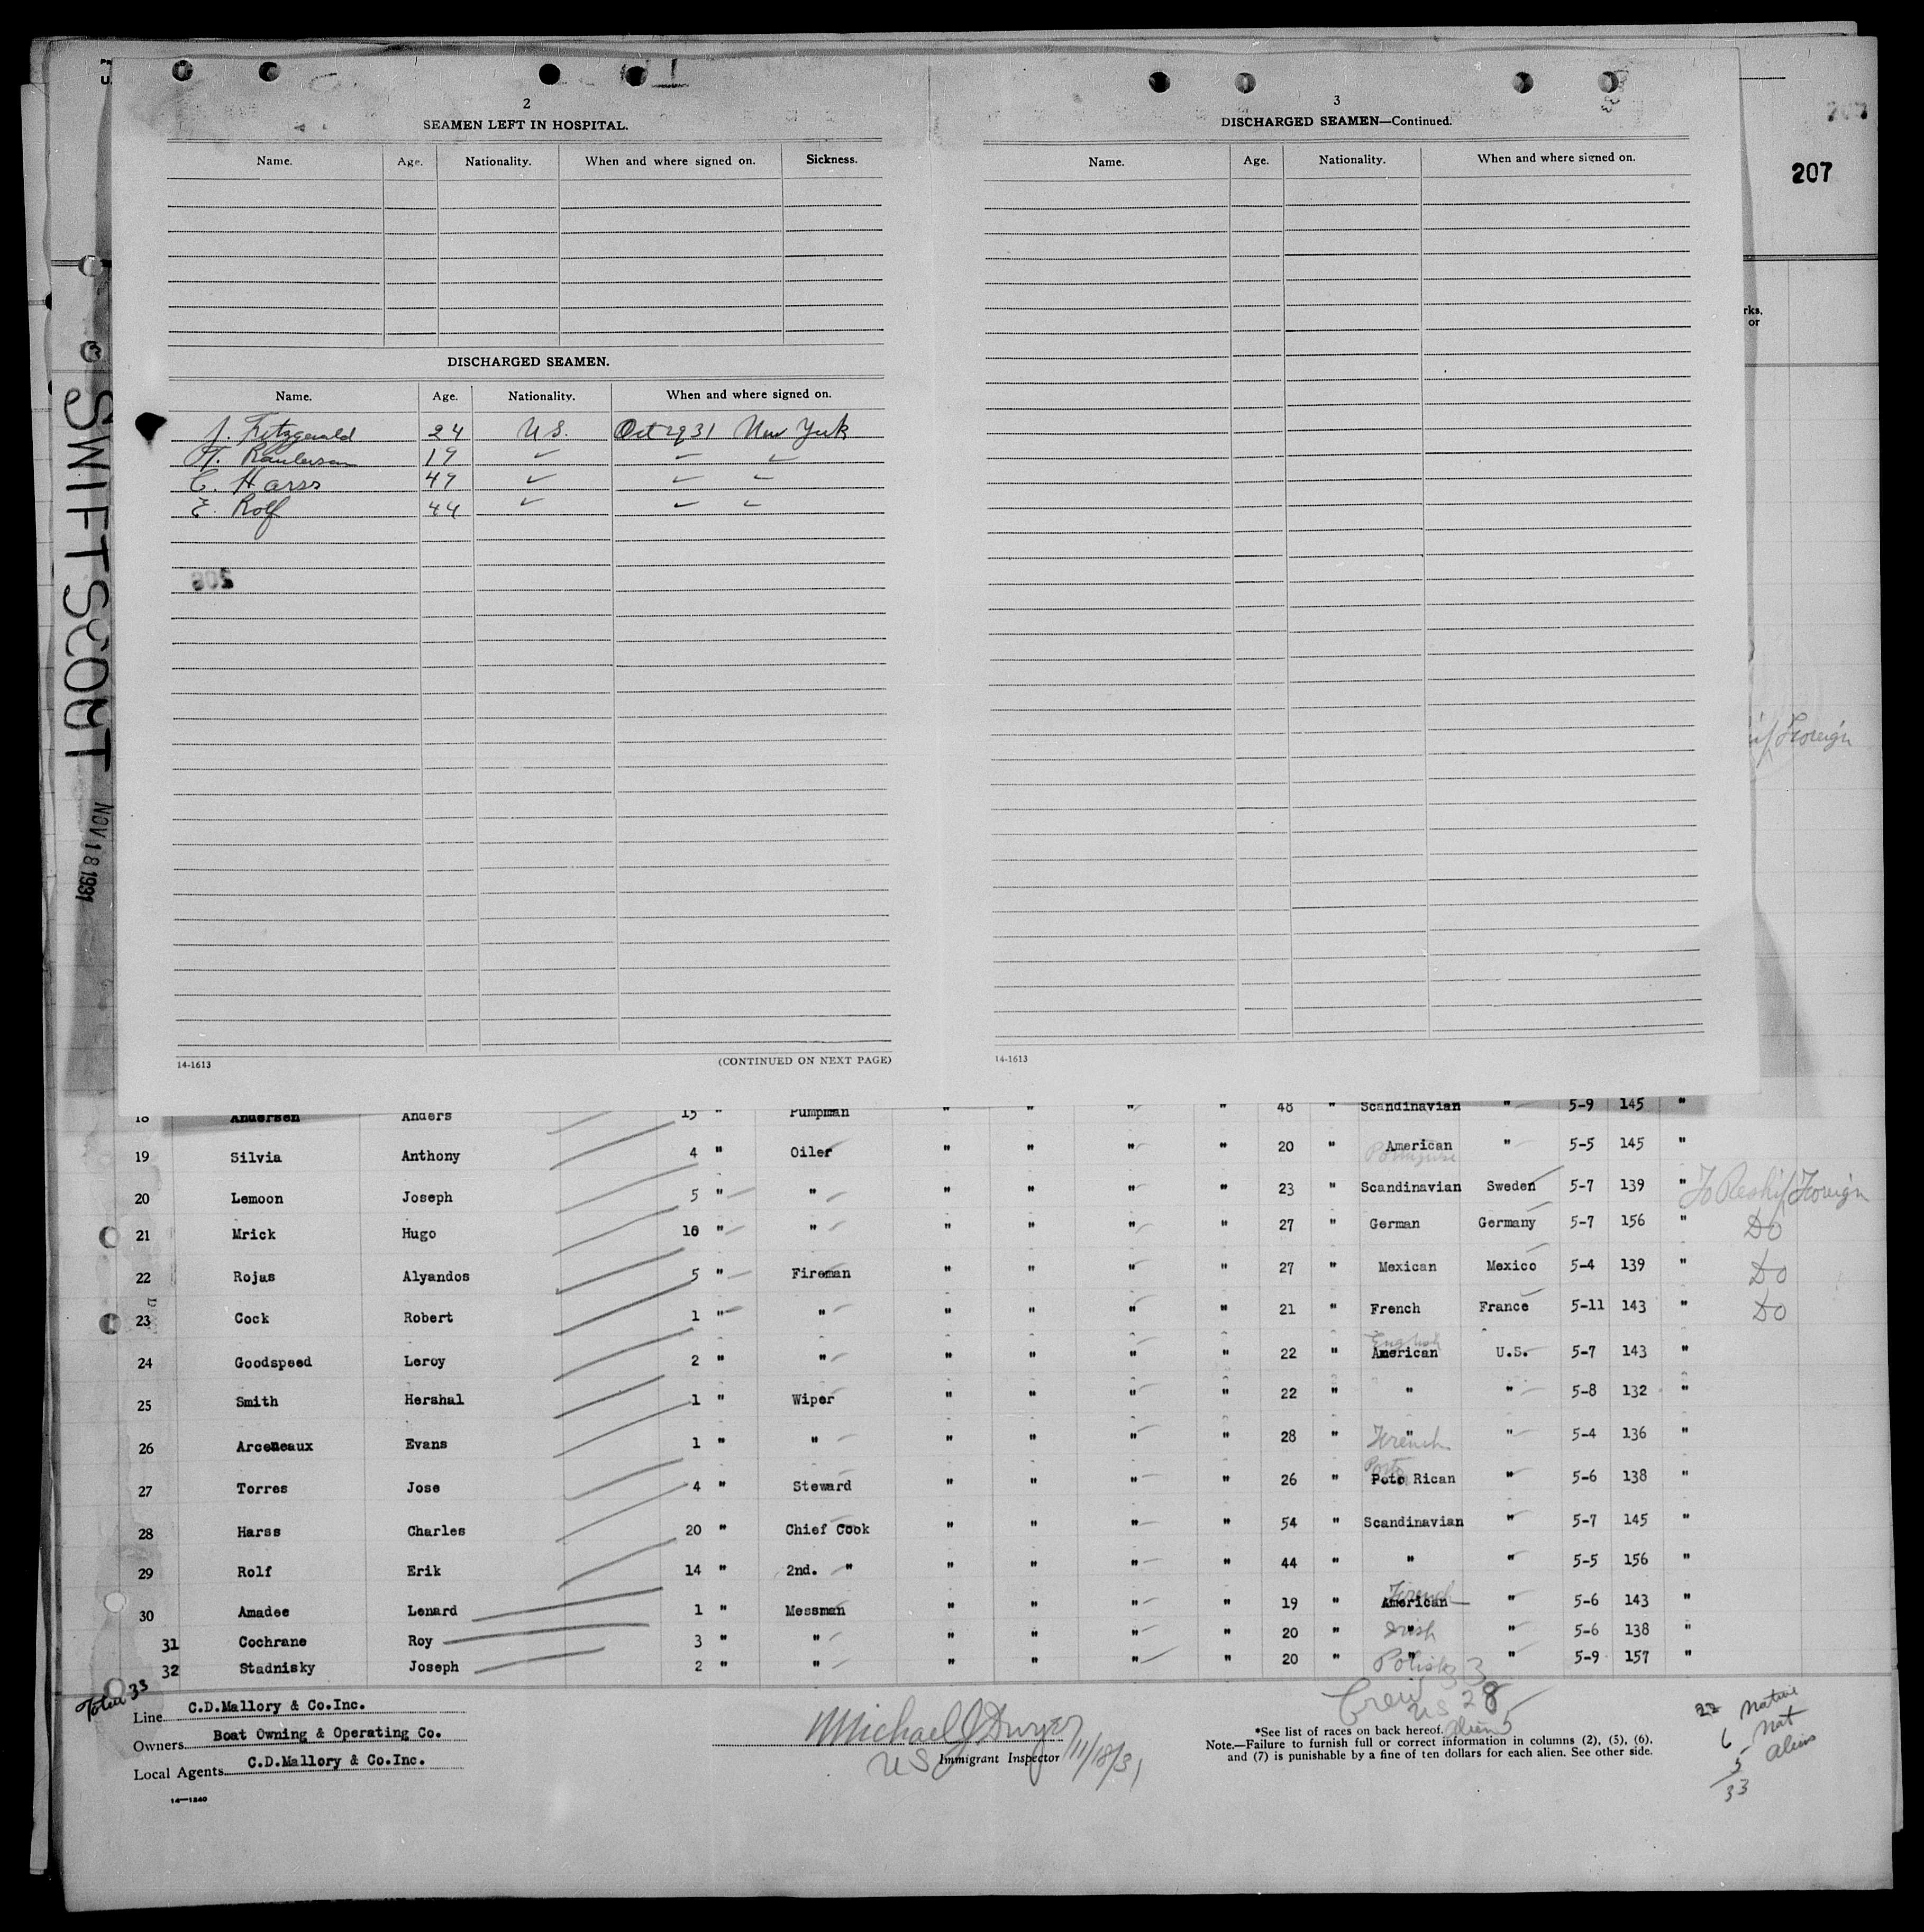 207
rks.
or
SWIFTSCOUT
NOV 18 1931
2
SEAMEN LEFT IN HOSPITAL.
Name. Age. Nationality. When and where signed on. Sickness.
DISCHARGED SEAMEN.
Name. Age. Nationality. When and where signed on.
J. Fitzgerald 24 U.S. Oct 29 31 New York
H. Raulerson 19
C. Harss 47
E. Rolf 44
206
14-1613 (CONTINUED ON NEXT PAGE)
3
DISCHARGED SEAMEN—Continued.
Name. Age. Nationality. When and where signed on.
14-1613
Foreign
18 Andersen Anders 15 " Pumpman " " " " 48 " Scandinavian " 5-9 145 "
19 Silvia Anthony 4 " Oiler " " " " 20 " American " 5-5 145 "
Portuguese
20 Lemoon Joseph 5 " " " " " " 23 " Scandinavian Sweden 5-7 139 " To Reship Foreign
21 Mrick Hugo 10 " " " " " " 27 " German Germany 5-7 156 " Do
22 Rojas Alyandos 5 " Fireman " " " " 27 " Mexican Mexico 5-4 139 " Do
23 Cock Robert 1 " " " " " " 21 " French France 5-11 143 " Do
English
24 Goodspeed Leroy 2 " " " " " " 22 " American U.S. 5-7 143 "
25 Smith Hershal 1 " Wiper " " " " 22 " " " 5-8 132 "
26 Arceneaux Evans 1 " " " " " " 28 " " French " 5-4 136 "
Porto
27 Torres Jose 4 " Steward " " " " 26 " Poto Rican " 5-6 138 "
28 Harss Charles 20 " Chief Cook " " " " 54 " Scandinavian " 5-7 145 "
29 Rolf Erik 14 " 2nd. " " " " " 44 " " " 5-5 156 "
French
30 Amadee Lenard 1 " Messman " " " " 19 " American " 5-6 143 "
31 Cochrane Roy 3 " " " " " " 20 " " Irish " 5-6 138 "
32 Stadnisky Joseph 2 " " " " " " 20 " " Polish " 5-9 157 "
Total 33
Line C.D.Mallory & Co.Inc.
Owners Boat Owning & Operating Co.
Local Agents C.D.Mallory & Co.Inc.
14—1240
Michael J Dwyer 11/18/31
US Immigrant Inspector
Crew 33
US 28
Alien 5
*See list of races on back hereof.
Note.—Failure to furnish full or correct information in columns (2), (5), (6),
and (7) is punishable by a fine of ten dollars for each alien. See other side.
22 Native
6 Nat
5 Aliens
33